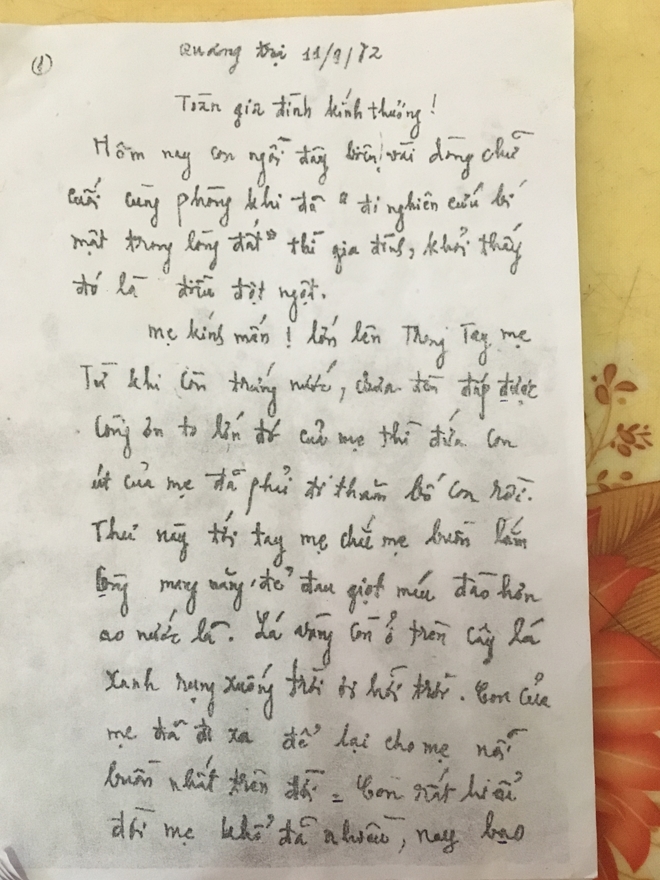 (1)
Quảng trị 11/9/72
Toàn gia đình kính thương!
Hôm nay con ngồi đây biên vài dòng chữ
cuối cùng phòng khi đã "đi nghiên cứu bí
mật trong lòng đất" thì gia đình, khỏi thấy
đó là điều đột ngột.
mẹ kính mến! lớn lên Trong Tay mẹ
Từ khi còn trứng nước, chưa đền đáp được
Công ơn to lớn đó của mẹ thì đứa con
út của mẹ đã phải đi thăm bố con rồi.
Thư này tới tay mẹ chắc mẹ buồn lắm
mang nặng đẻ đau giọt máu đào hơn
ao nước lã. Lá vàng còn ở trên cây lá
xanh rụng xuống trời ơi hỡi trời. Con của
mẹ đã đi xa để lại cho mẹ nỗi
buồn nhất trên đời = Con rất hiểu
đời mẹ khổ đã nhiều, nay bao